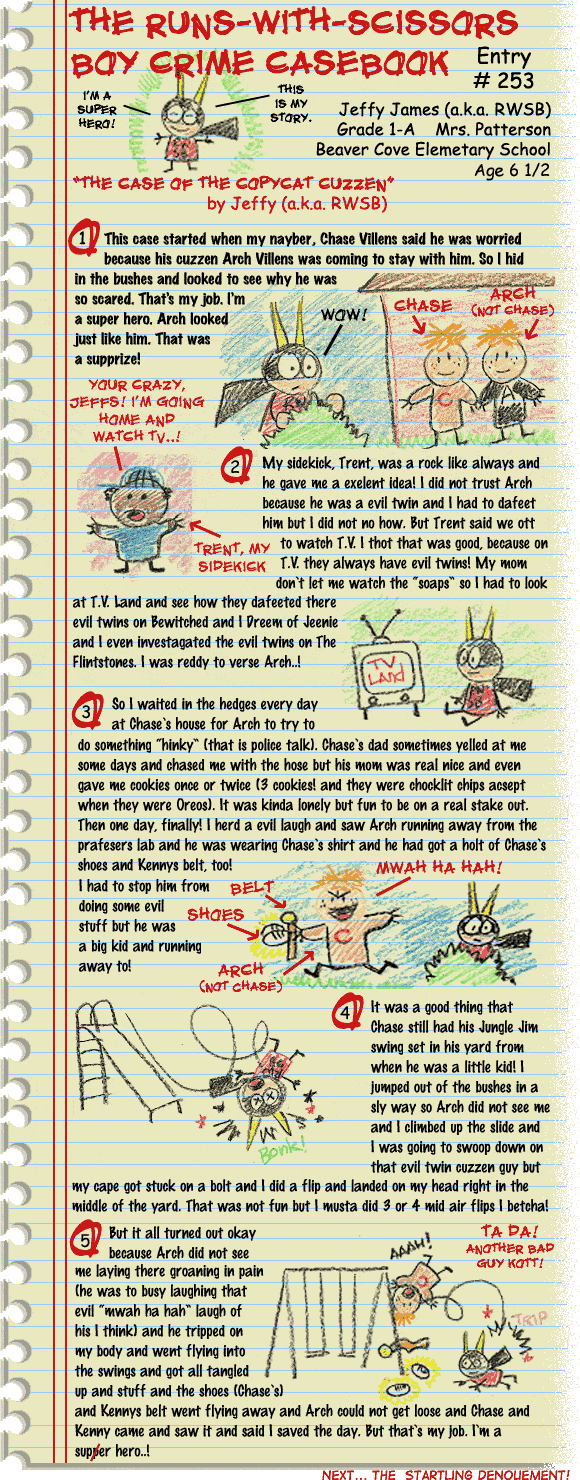 THE RUNS-WITH-SCISSORS
BOY CRIME CASEBOOK
Entry
# 253
I'M A
SUPER
HERO!
THIS
IS MY
STORY.
Jeffy James (a.k.a. RWSB)
Grade 1-A Mrs. Patterson
Beaver Cove Elemetary School
Age 6 1/2
"THE CASE OF THE COPYCAT CUZZEN"
by Jeffy (a.k.a. RWSB)
1 This case started when my nayber, Chase Villens said he was worried
because his cuzzen Arch Villens was coming to stay with him. So I hid
in the bushes and looked to see why he was
so scared. That's my job. I'm
a super hero. Arch looked
just like him. That was
a supprize!
WOW!
CHASE
ARCH
(NOT CHASE)
C
A
YOUR CRAZY,
JEFFS! I'M GOING
HOME AND
WATCH TV..!
TRENT, MY
SIDEKICK
2 My sidekick, Trent, was a rock like always and
he gave me a exelent idea! I did not trust Arch
because he was a evil twin and I had to dafeet
him but I did not no how. But Trent said we ott
to watch T.V. I thot that was good, because on
T.V. they always have evil twins! My mom
don't let me watch the "soaps" so I had to look
at T.V. Land and see how they dafeeted there
evil twins on Bewitched and I Dreem of Jeenie
and I even investagated the evil twins on The
Flintstones. I was reddy to verse Arch..!
TV
Land
3 So I waited in the hedges every day
at Chase's house for Arch to try to
do something "hinky" (that is police talk). Chase's dad sometimes yelled at me
some days and chased me with the hose but his mom was real nice and even
gave me cookies once or twice (3 cookies! and they were chocklit chips acsept
when they were Oreos). It was kinda lonely but fun to be on a real stake out.
Then one day, finally! I herd a evil laugh and saw Arch running away from the
prafesers lab and he was wearing Chase's shirt and he had got a holt of Chase's
shoes and Kennys belt, too!
I had to stop him from
doing some evil
stuff but he was
a big kid and running
away to!
BELT
MWAH HA HAH!
SHOES
C
ARCH
(NOT CHASE)
4 It was a good thing that
Chase still had his Jungle Jim
swing set in his yard from
when he was a little kid! I
jumped out of the bushes in a
sly way so Arch did not see me
and I climbed up the slide and
I was going to swoop down on
that evil twin cuzzen guy but
my cape got stuck on a bolt and I did a flip and landed on my head right in the
middle of the yard. That was not fun but I musta did 3 or 4 mid air flips I betcha!
Bonk!
5 But it all turned out okay
because Arch did not see
me laying there groaning in pain
(he was to busy laughing that
evil "mwah ha hah" laugh of
his I think) and he tripped on
my body and went flying into
the swings and got all tangled
up and stuff and the shoes (Chase's)
and Kennys belt went flying away and Arch could not get loose and Chase and
Kenny came and saw it and said I saved the day. But that's my job. I'm a
supper hero..!
AAAH!
C
TA DA!
ANOTHER BAD
GUY KOTT!
TRIP
NEXT... THE STARTLING DENOUEMENT!